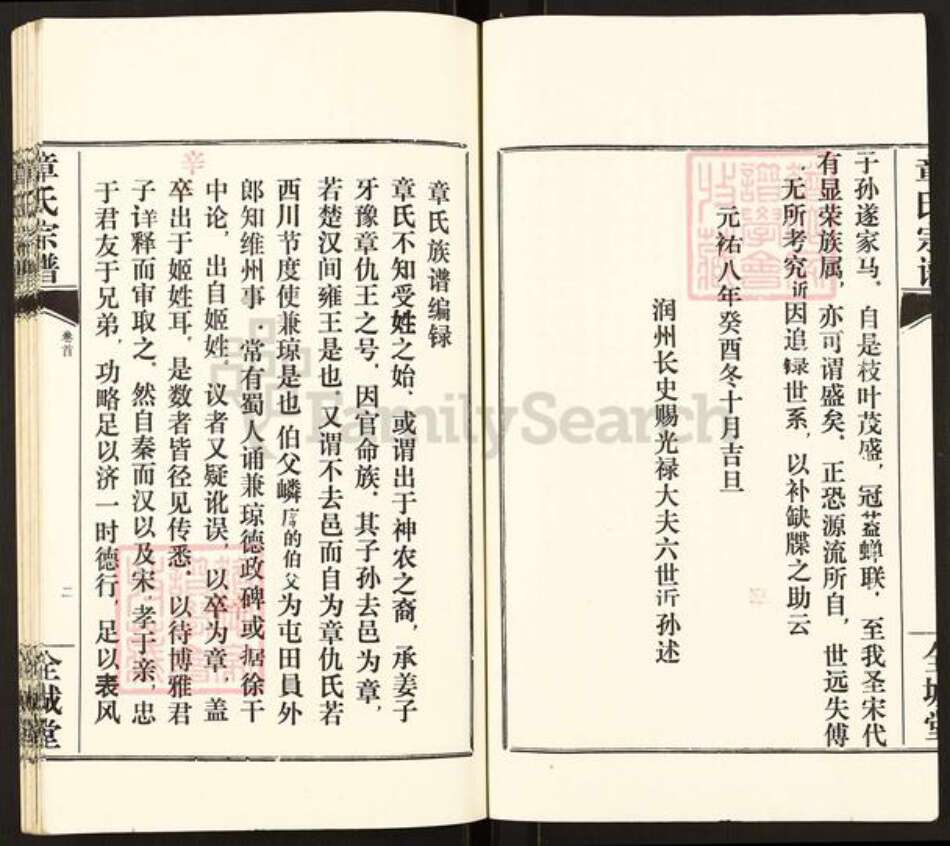 章氏宗谱
于孙遂家马．自是枝叶茂盛，冠葢蝉联，至我圣宋代
有显荣族属，亦可谓盛矣．正恐源流所自，世远失傅
．无所考究近因追録世系，以补缺牒之助云
元祐八年癸酉冬十月吉旦
润州长史赐光禄大夫六世近孙述
全城堂
章氏族谱编録
章氏不知受姓之始．或谓出于神农之裔，承姜子
牙豫章仇王之号，因官命族．其子孙去邑为章，
若楚汉间雍王是也．又谓不去邑而自为章仇氏若
西川节度使兼琼是也．伯父嶙席的伯父为屯田員外
郎知维州事．常有蜀人诵兼琼德政碑或据徐干
中论，出自姬姓。议者又疑讹误，以卒为章，盖
卒出于姬姓耳．是数者皆径见传悉．以待博雅君
子详释而审取之．然自秦而汉以及宋．孝于亲，忠
于君友于兄弟，功略足以济一时德行，足以表风
辛
章氏宗谱
卷首
二
全城堂
FamilySearch